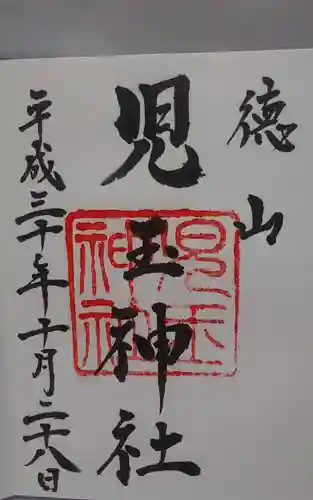 徳山
児玉神社
児玉神社
平成三十年十月二十八日